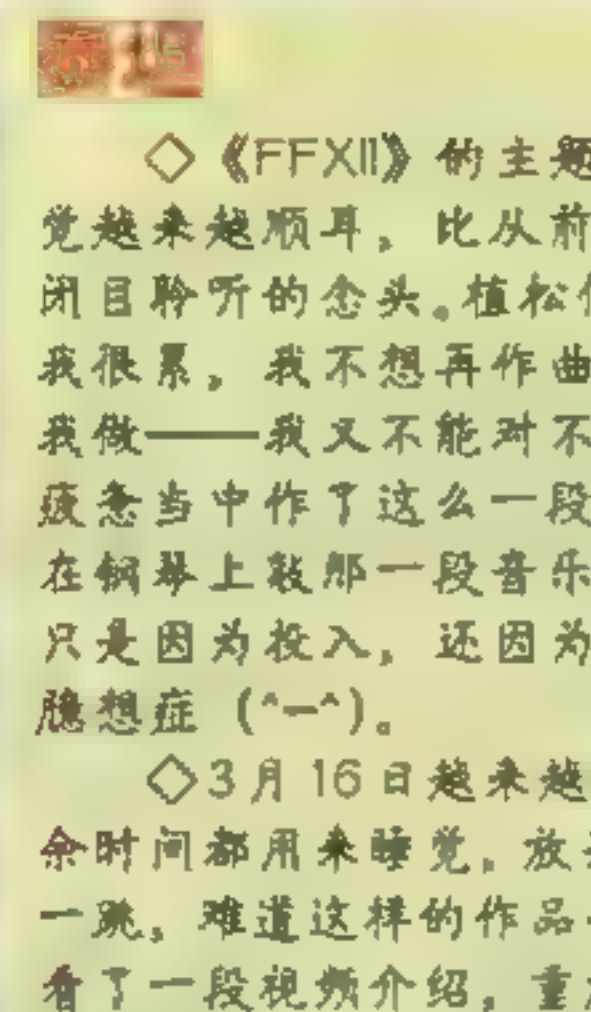 ◇《FFXII》的主题
觉越来越顺耳，比从前
闭目聆听的念头。植松
我很累，我不想再作曲
我做——我又不能对不
疲惫当中作了这么一段
在钢琴上敲那一段音乐
只是因为投入，还因为
臆想症（^—^）。
◇3月16日越来越
余时间都用来睡觉，放
一跳，难道这样的作品
看了一段视频介绍，重